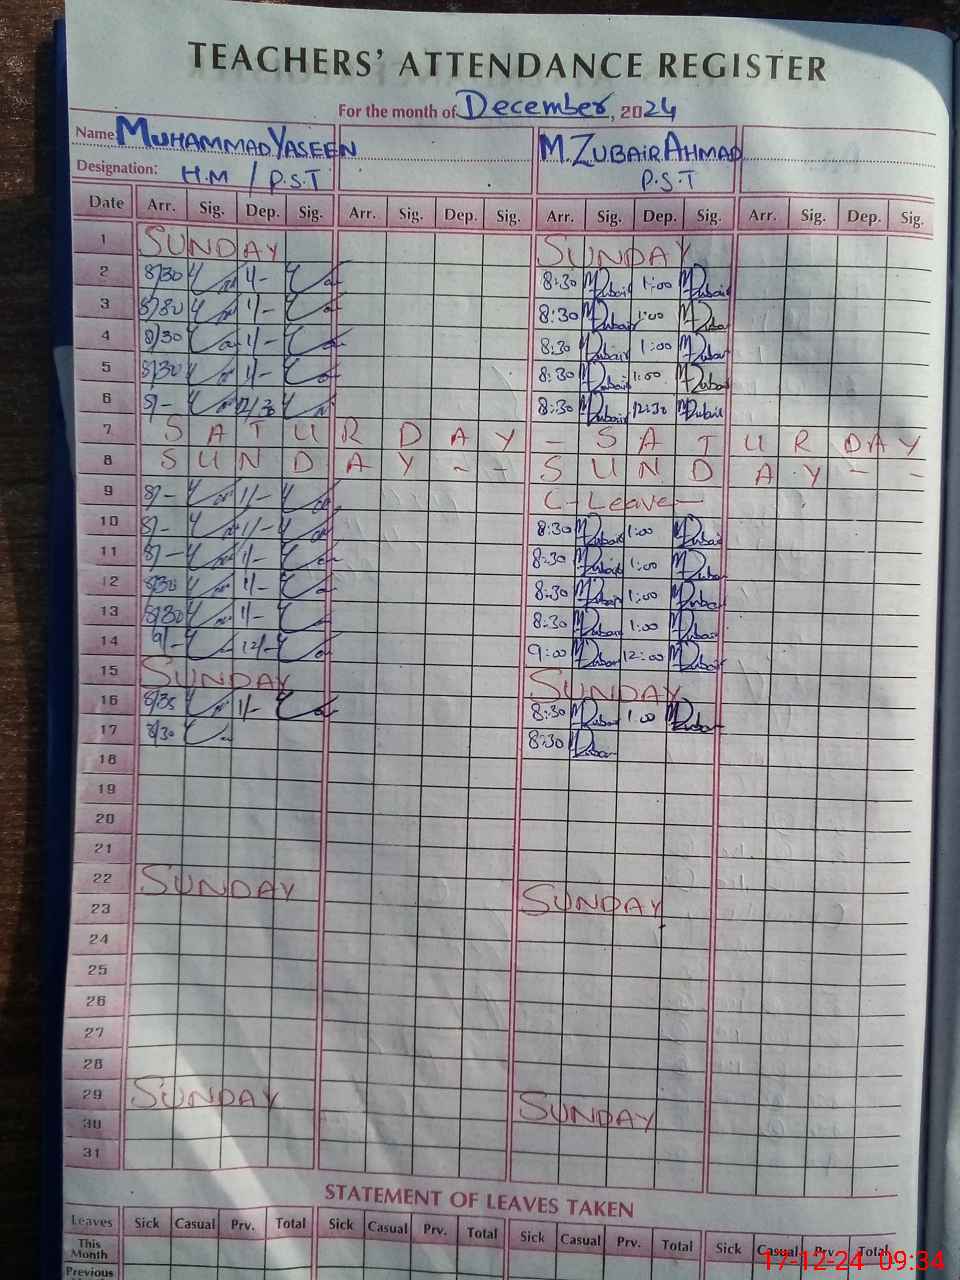 TEACHERS' ATTENDANCE REGISTER
For the month of December, 2024
Name MUHAMMAD YASEEN M. ZUBAIR AHMAD
Designation: H.M / P.S.T P.S.T
Date Arr. Sig. Dep. Sig. Arr. Sig. Dep. Sig. Arr. Sig. Dep. Sig. Arr. Sig. Dep. Sig.
1 SUNDAY SUNDAY
2 8/30 1/- 8:30 MZubair 1:00 MZubair
3 8/30 1/- 8:30 MZubair 1:00 MZubair
4 8/30 1/- 8:30 MZubair 1:00 MZubair
5 8/30 1/- 8:30 MZubair 1:00 MZubair
6 8/- 12/30 8:30 MZubair 12:30 MZubair
7 SATURDAY - SATURDAY
8 SUNDAY - - SUNDAY - -
9 8/- 1/- C-Leave-
10 8/- 1/- 8:30 MZubair 1:00 MZubair
11 8/- 1/- 8:30 MZubair 1:00 MZubair
12 8/30 1/- 8:30 MZubair 1:00 MZubair
13 8/30 1/- 8:30 MZubair 1:00 MZubair
14 9/- 12/- 9:00 MZubair 12:00 MZubair
15 SUNDAY SUNDAY
16 8/35 1/- 8:30 MZubair 1:00 MZubair
17 8/30 8:30 MZubair
18
19
20
21
22 SUNDAY SUNDAY
23
24
25
26
27
28
29 SUNDAY SUNDAY
30
31
STATEMENT OF LEAVES TAKEN
Leaves Sick Casual Prv. Total Sick Casual Prv. Total Sick Casual Prv. Total Sick Casual Prv. Total
This Month
Previous
17-12-24 09:34